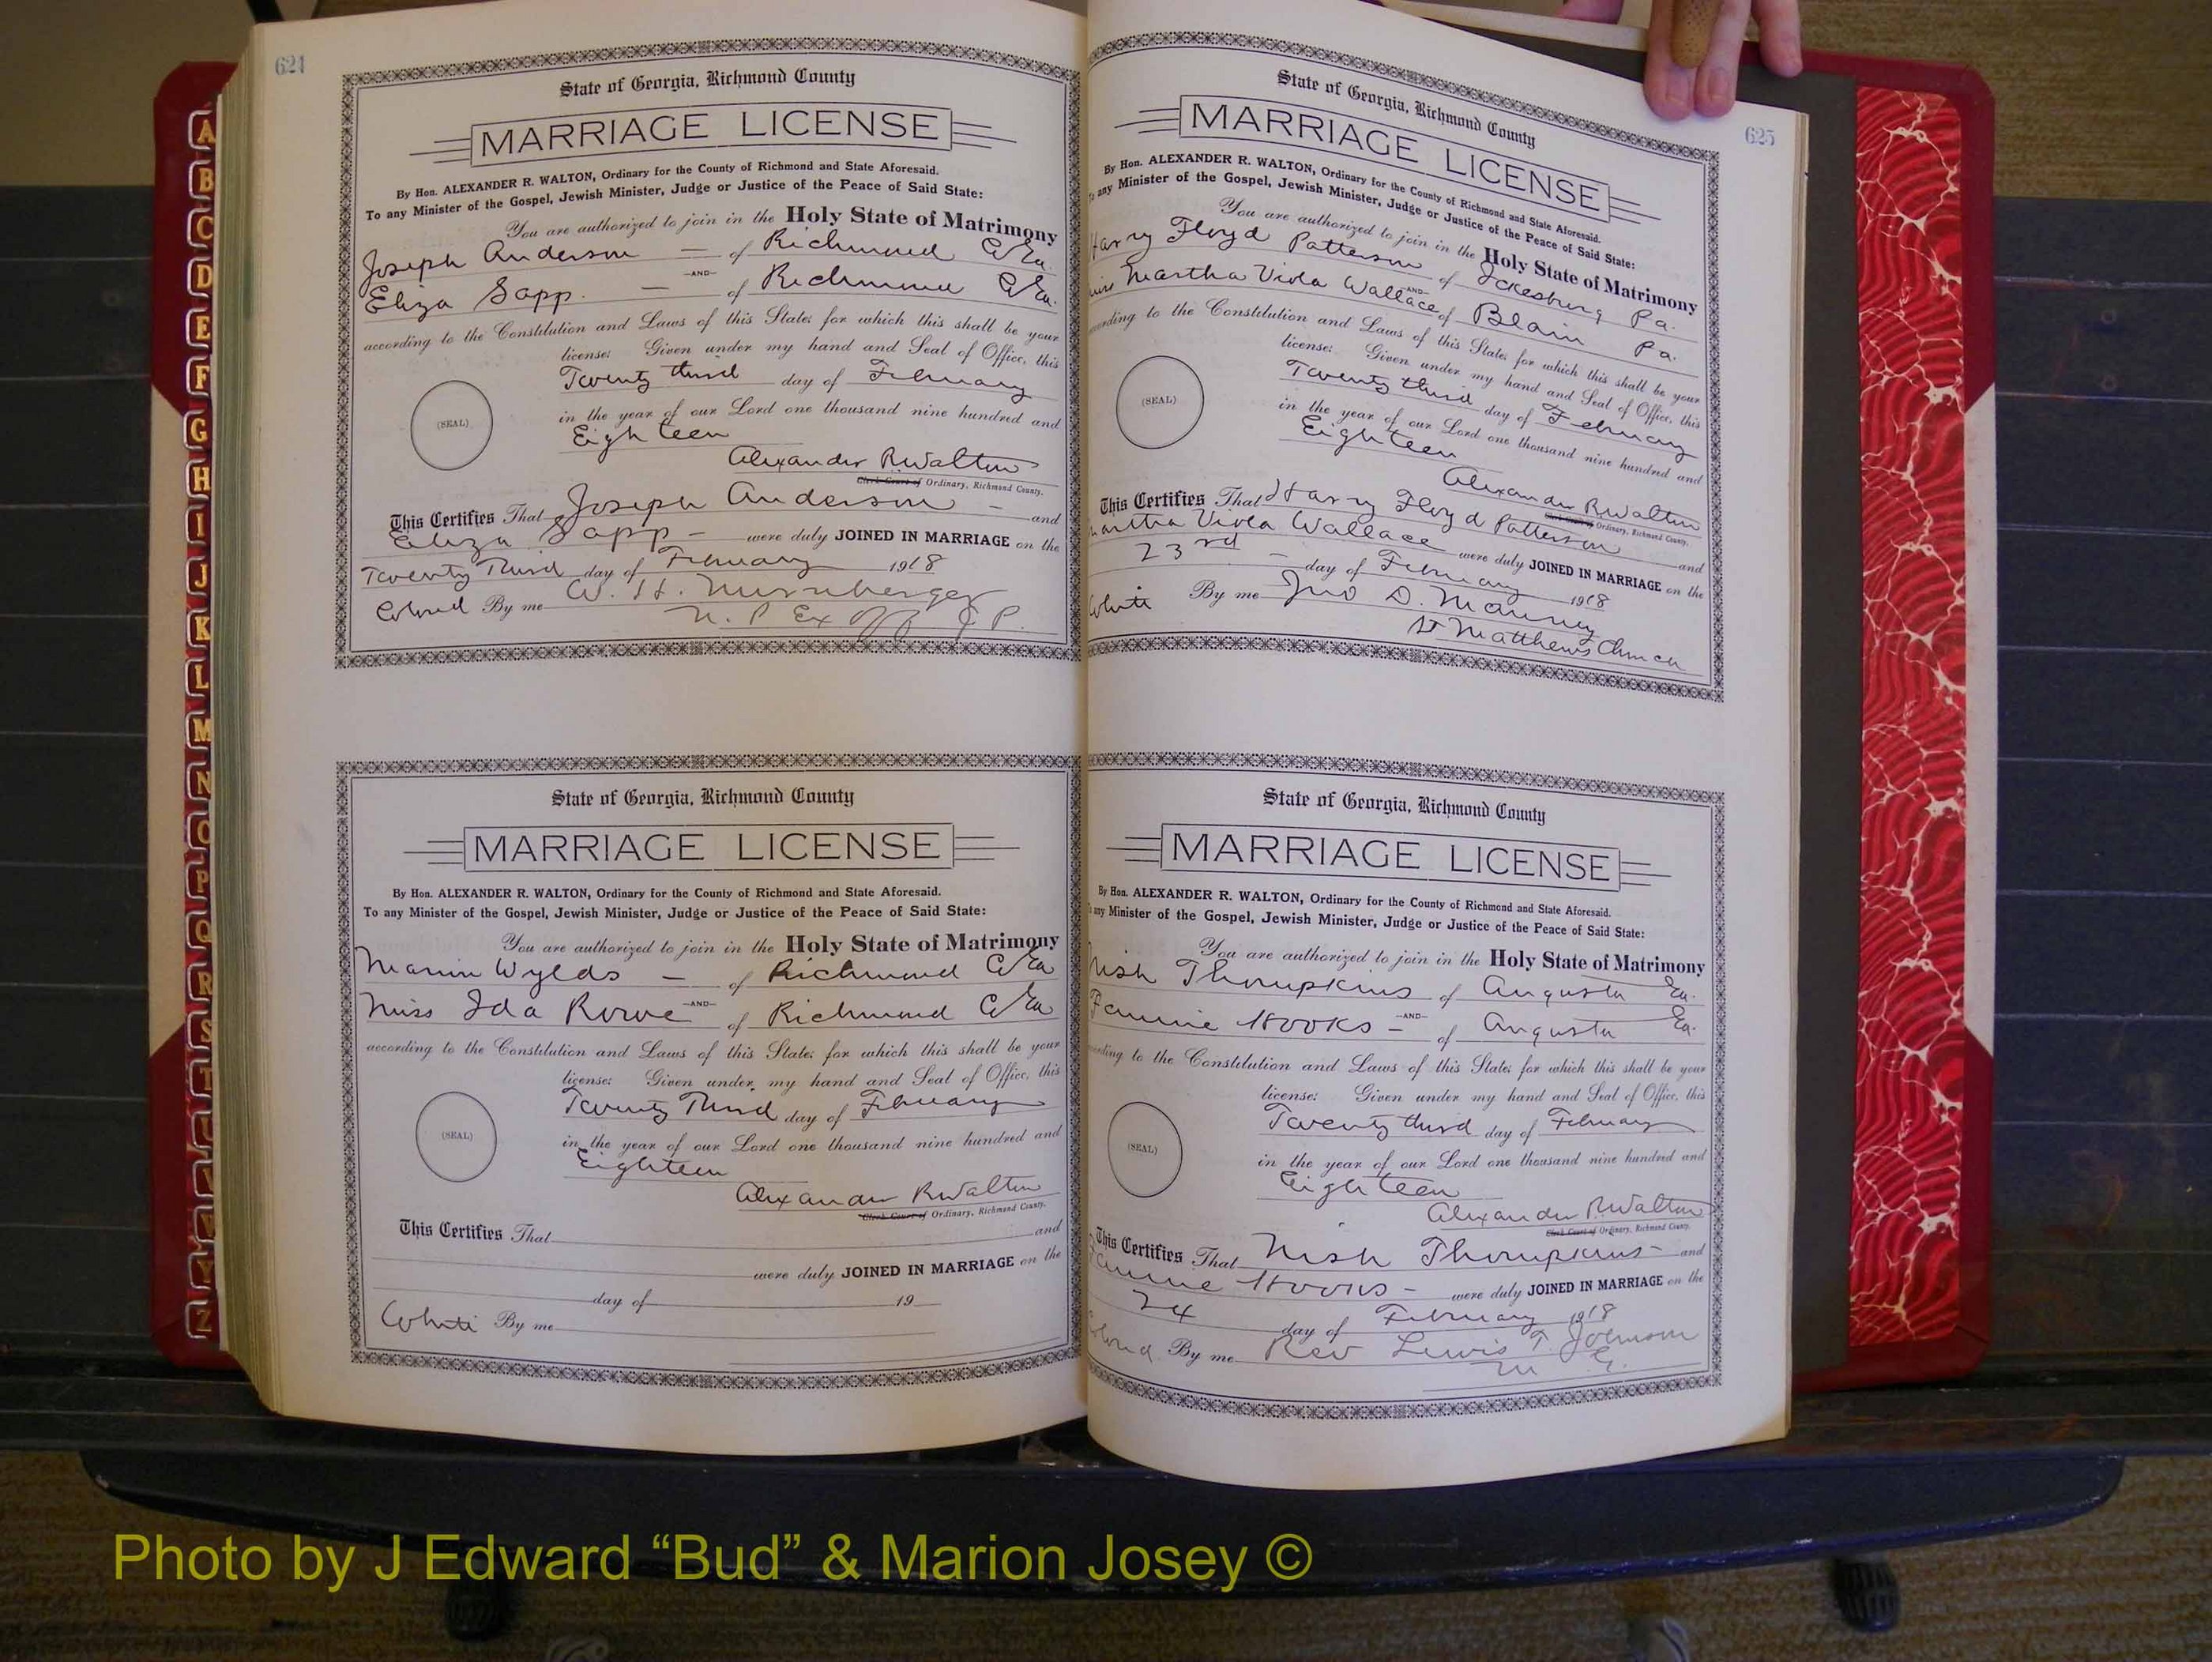 624
State of Georgia, Richmond County
MARRIAGE LICENSE
By Hon. ALEXANDER R. WALTON, Ordinary for the County of Richmond and State Aforesaid.
To any Minister of the Gospel, Jewish Minister, Judge or Justice of the Peace of Said State:
You are authorized to join in the Holy State of Matrimony
Joseph Anderson — of Richmond Co Ga.
—AND—
Eliza Sapp. — of Richmond Co Ga.
according to the Constitution and Laws of this State; for which this shall be your
license: Given under my hand and Seal of Office, this
Twenty third day of February
(SEAL)
in the year of our Lord one thousand nine hundred and
Eighteen
Alexander R Walton
Clerk Court of Ordinary, Richmond County.
This Certifies That Joseph Anderson — and
Eliza Sapp — were duly JOINED IN MARRIAGE on the
Twenty Third day of February 1918
Colored By me W. H. Nurnberger
N. P Ex Off J P.
State of Georgia, Richmond County
MARRIAGE LICENSE
By Hon. ALEXANDER R. WALTON, Ordinary for the County of Richmond and State Aforesaid.
To any Minister of the Gospel, Jewish Minister, Judge or Justice of the Peace of Said State:
You are authorized to join in the Holy State of Matrimony
Marion Wylds — of Richmond Co Ga
—AND—
Miss Ida Rowe of Richmond Co Ga
according to the Constitution and Laws of this State; for which this shall be your
license: Given under my hand and Seal of Office, this
Twenty Third day of February
(SEAL)
in the year of our Lord one thousand nine hundred and
Eighteen
Alexander R Walton
Clerk Court of Ordinary, Richmond County.
This Certifies That and
were duly JOINED IN MARRIAGE on the
day of 19
White By me
625
State of Georgia, Richmond County
MARRIAGE LICENSE
By Hon. ALEXANDER R. WALTON, Ordinary for the County of Richmond and State Aforesaid.
any Minister of the Gospel, Jewish Minister, Judge or Justice of the Peace of Said State:
You are authorized to join in the Holy State of Matrimony
Harry Floyd Patterson of Ickesburg Pa.
—AND—
Miss Martha Viola Wallace of Blain Pa.
according to the Constitution and Laws of this State; for which this shall be your
license: Given under my hand and Seal of Office, this
Twenty third day of February
(SEAL)
in the year of our Lord one thousand nine hundred and
Eighteen
Alexander R Walton
Clerk Court of Ordinary, Richmond County.
This Certifies That Harry Floyd Patterson and
Martha Viola Wallace were duly JOINED IN MARRIAGE on the
23rd — day of February 1918
White By me Jno D. Mauney
St Matthews Church
State of Georgia, Richmond County
MARRIAGE LICENSE
By Hon. ALEXANDER R. WALTON, Ordinary for the County of Richmond and State Aforesaid.
any Minister of the Gospel, Jewish Minister, Judge or Justice of the Peace of Said State:
You are authorized to join in the Holy State of Matrimony
Nish Thompkins of Augusta Ga.
—AND—
Fannie Hooks — of Augusta Ga.
according to the Constitution and Laws of this State; for which this shall be your
license: Given under my hand and Seal of Office, this
Twenty third day of February
(SEAL)
in the year of our Lord one thousand nine hundred and
Eighteen
Alexander R Walton
Clerk Court of Ordinary, Richmond County.
This Certifies That Nish Thompkins — and
Fannie Hooks — were duly JOINED IN MARRIAGE on the
24 day of February 1918
Colored By me Rev Lewis T. Johnson
M. G.
A
B
C
D
E
F
G
H
I
J
K
L
M
N
O
P
Q
R
S
T
U
V
W
Y
Z
Photo by J Edward “Bud” & Marion Josey ©